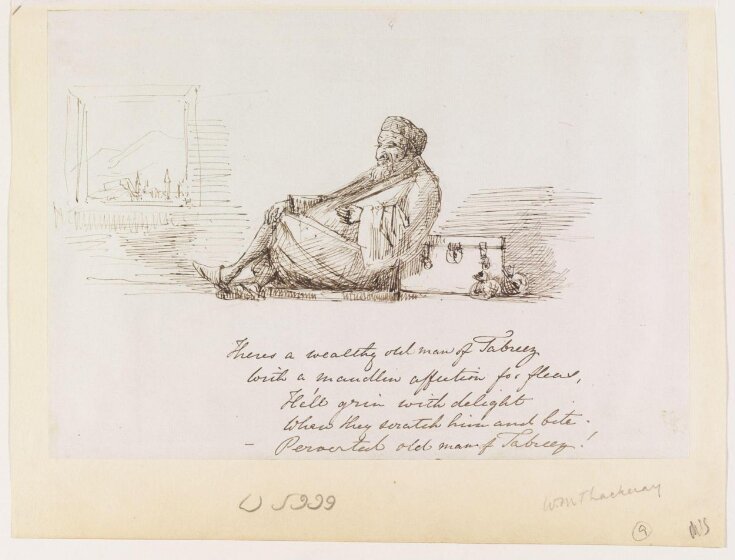 Theres a wealthy old man of Tabreez
With a maudlin affection for fleas,
He'll grin with delight
When they scratch him and bite -
- Perverted old man of Tabreez!
W.M Thackeray
9